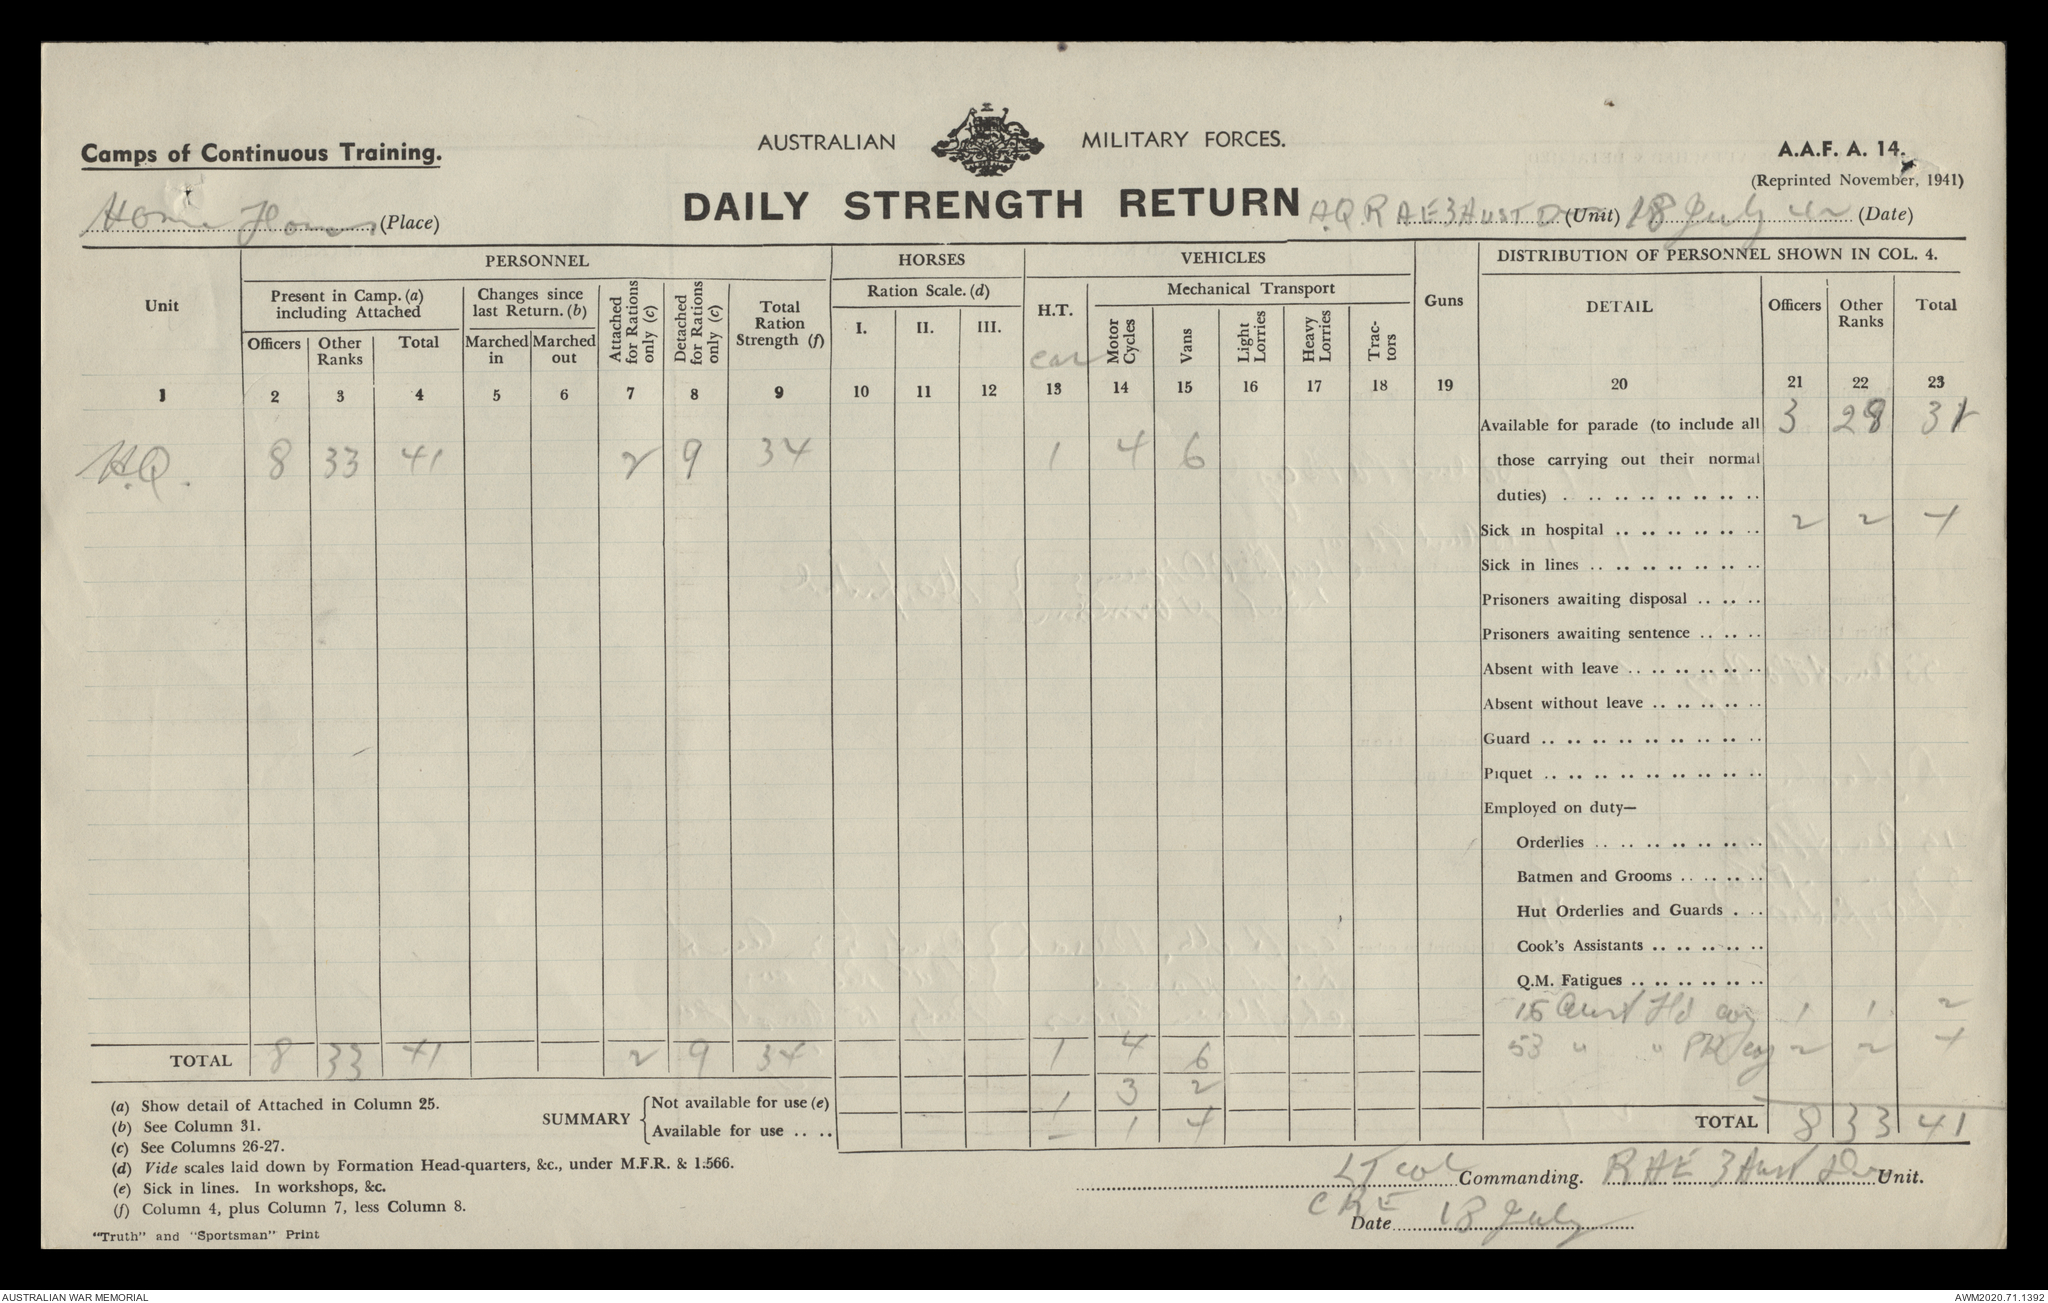 Camps of Continuous Training.
AUSTRALIAN MILITARY FORCES.
A.A.F. A. 14.
(Reprinted November, 1941)
DAILY STRENGTH RETURN
(Place)
RAE 3 Aust Div (Unit) 18 July 42 (Date)
Unit
PERSONNEL
HORSES
VEHICLES
Guns
DISTRIBUTION OF PERSONNEL SHOWN IN COL. 4.
Present in Camp. (a) including Attached
Changes since last Return. (b)
Attached for Rations only (c)
Detached for Rations only (c)
Total Ration Strength (f)
Ration Scale. (d)
H.T.
car
Mechanical Transport
DETAIL
Officers
Other Ranks
Total
Officers
Other Ranks
Total
Marched in
Marched out
I.
II.
III.
Motor Cycles
Vans
Light Lorries
Heavy Lorries
Trac-tors
1 2 3 4 5 6 7 8 9 10 11 12 13 14 15 16 17 18 19 20 21 22 23
H.Q. 8 33 41 2 9 34 1 4 6
Available for parade (to include all 3 28 31
those carrying out their normal
duties)
Sick in hospital 2 2 4
Sick in lines
Prisoners awaiting disposal
Prisoners awaiting sentence
Absent with leave
Absent without leave
Guard
Piquet
Employed on duty—
Orderlies
Batmen and Grooms
Hut Orderlies and Guards
Cook's Assistants
Q.M. Fatigues
15 Aust Fd coy 1 1 2
53 " " Pk coy 2 2 4
TOTAL 8 33 41 2 9 34 1 4 6
SUMMARY
Not available for use (e) 1 3 2
Available for use – 1 4
TOTAL 8 33 41
(a) Show detail of Attached in Column 25.
(b) See Column 31.
(c) See Columns 26-27.
(d) Vide scales laid down by Formation Head-quarters, &c., under M.F.R. & 1:566.
(e) Sick in lines. In workshops, &c.
(f) Column 4, plus Column 7, less Column 8.
Lt col Commanding. RAE 3 Aust Div Unit.
CRE
Date 18 July
"Truth" and "Sportsman" Print
AUSTRALIAN WAR MEMORIAL
AWM2020.71.1392